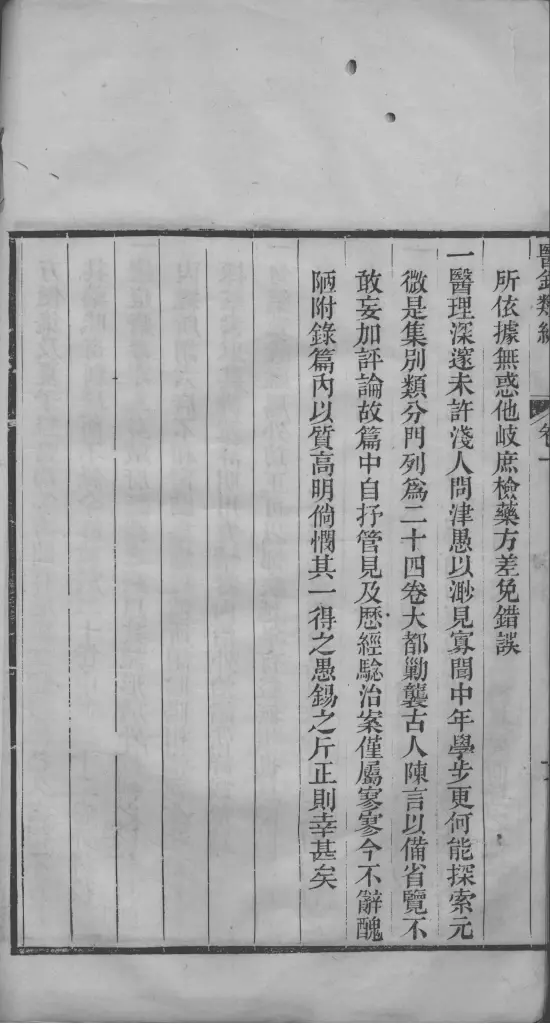 醫鈔類編 卷一
所依據無惑他岐庶檢藥方差免錯誤
一醫理深邃未許淺人問津愚以渺見寡聞中年學步更何能探索元
微是集別類分門列爲二十四卷大都勦襲古人陳言以備省覽不
敢妄加評論故篇中自抒管見及歷經驗治案僅屬寥寥今不辭醜
陋附錄篇內以質高明倘憫其一得之愚錫之斤正則幸甚矣